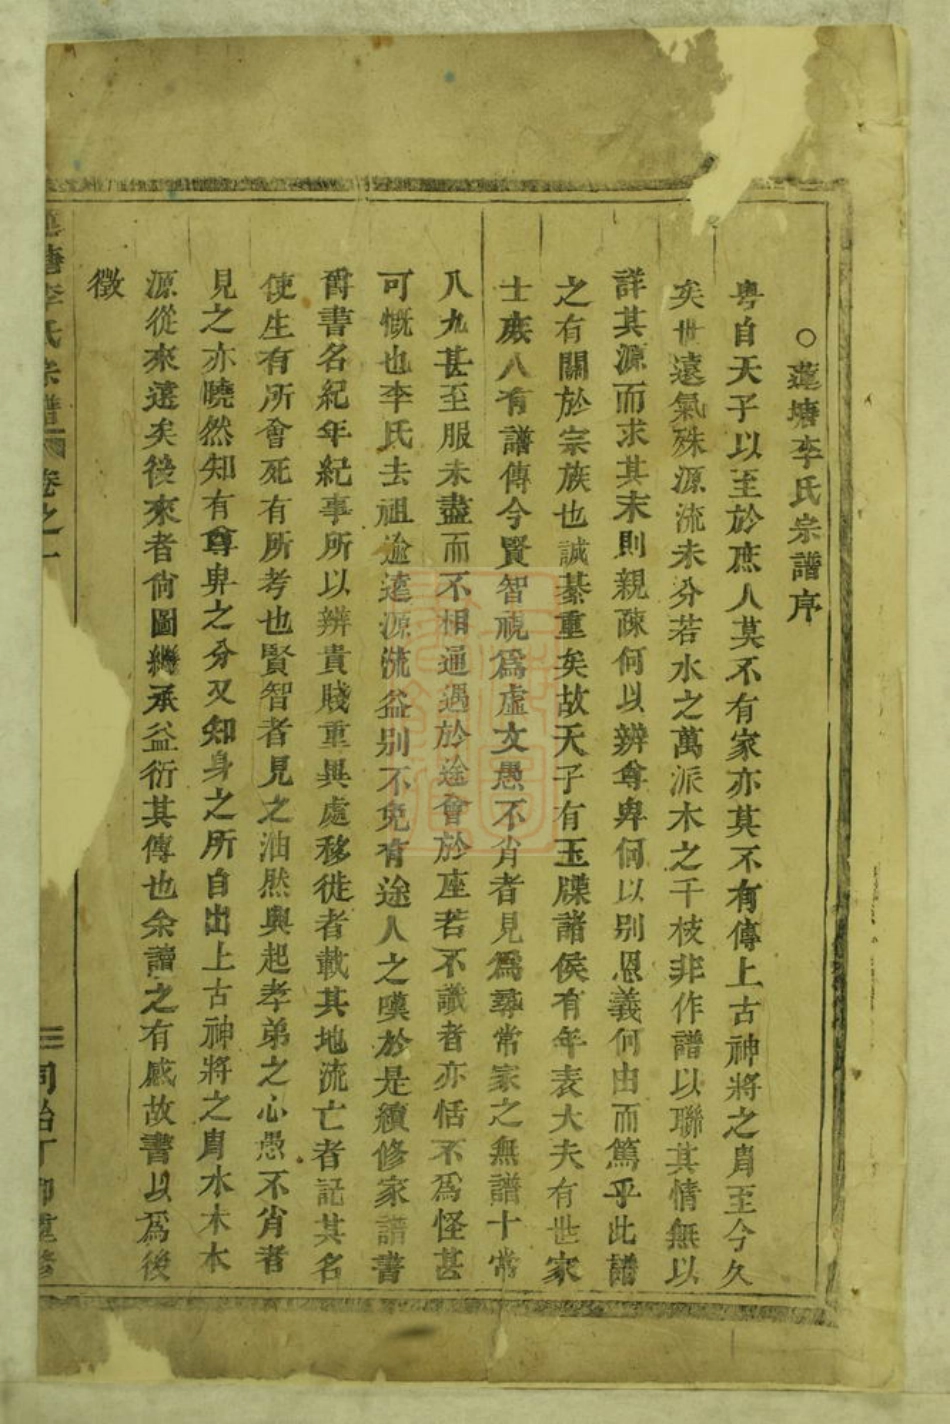 ○蓮塘李氏宗譜序
粵自天子以至於庶人莫不有家亦莫不有傳上古神將之冑至今久
矣世遠氣殊源流未分若水之萬派木之千枝非作譜以聯其情無以
詳其源而求其末則親疎何以辨尊卑何以别恩義何由而篤乎此譜
之有關於宗族也誠綦重矣故天子有玉牒諸侯有年表大夫有世家
士族八有譜傳今賢智視爲虛文愚不肖者見爲尋常家之無譜十常
八九甚至服未盡而不相通遇於途會於座若不識者亦恬不爲怪甚
可慨也李氏去祖逾遠源流益别不免有途人之嘆於是續修家譜書
爵書名紀年紀事所以辨貴賤重異處移徙者載其地流亡者記其名
使生有所會死有所考也賢智者見之油然興起孝弟之心愚不肖者
見之亦曉然知有尊卑之分又知身之所自出上古神將之冑水木本
源從來遠矣後來者尙圖繼承益衍其傳也余讀之有感故書以爲後
徵
塘李氏宗譜 卷之一 二 同治丁卯重修